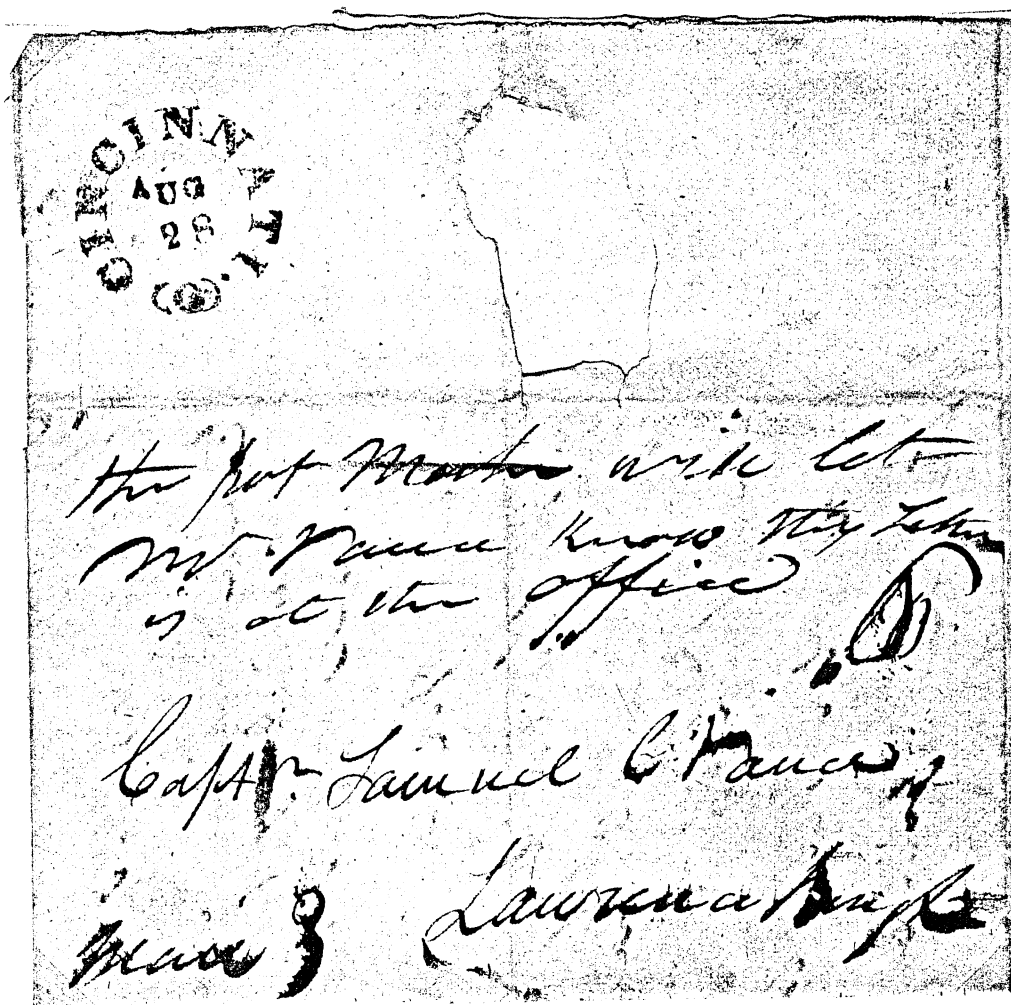 CINCINNATI.
AUG
28
the post Master will let
Mr. Vance Know this Letter
is at the office
6
Captn. Samuel C. Vance
Mail Lawrenceburgh